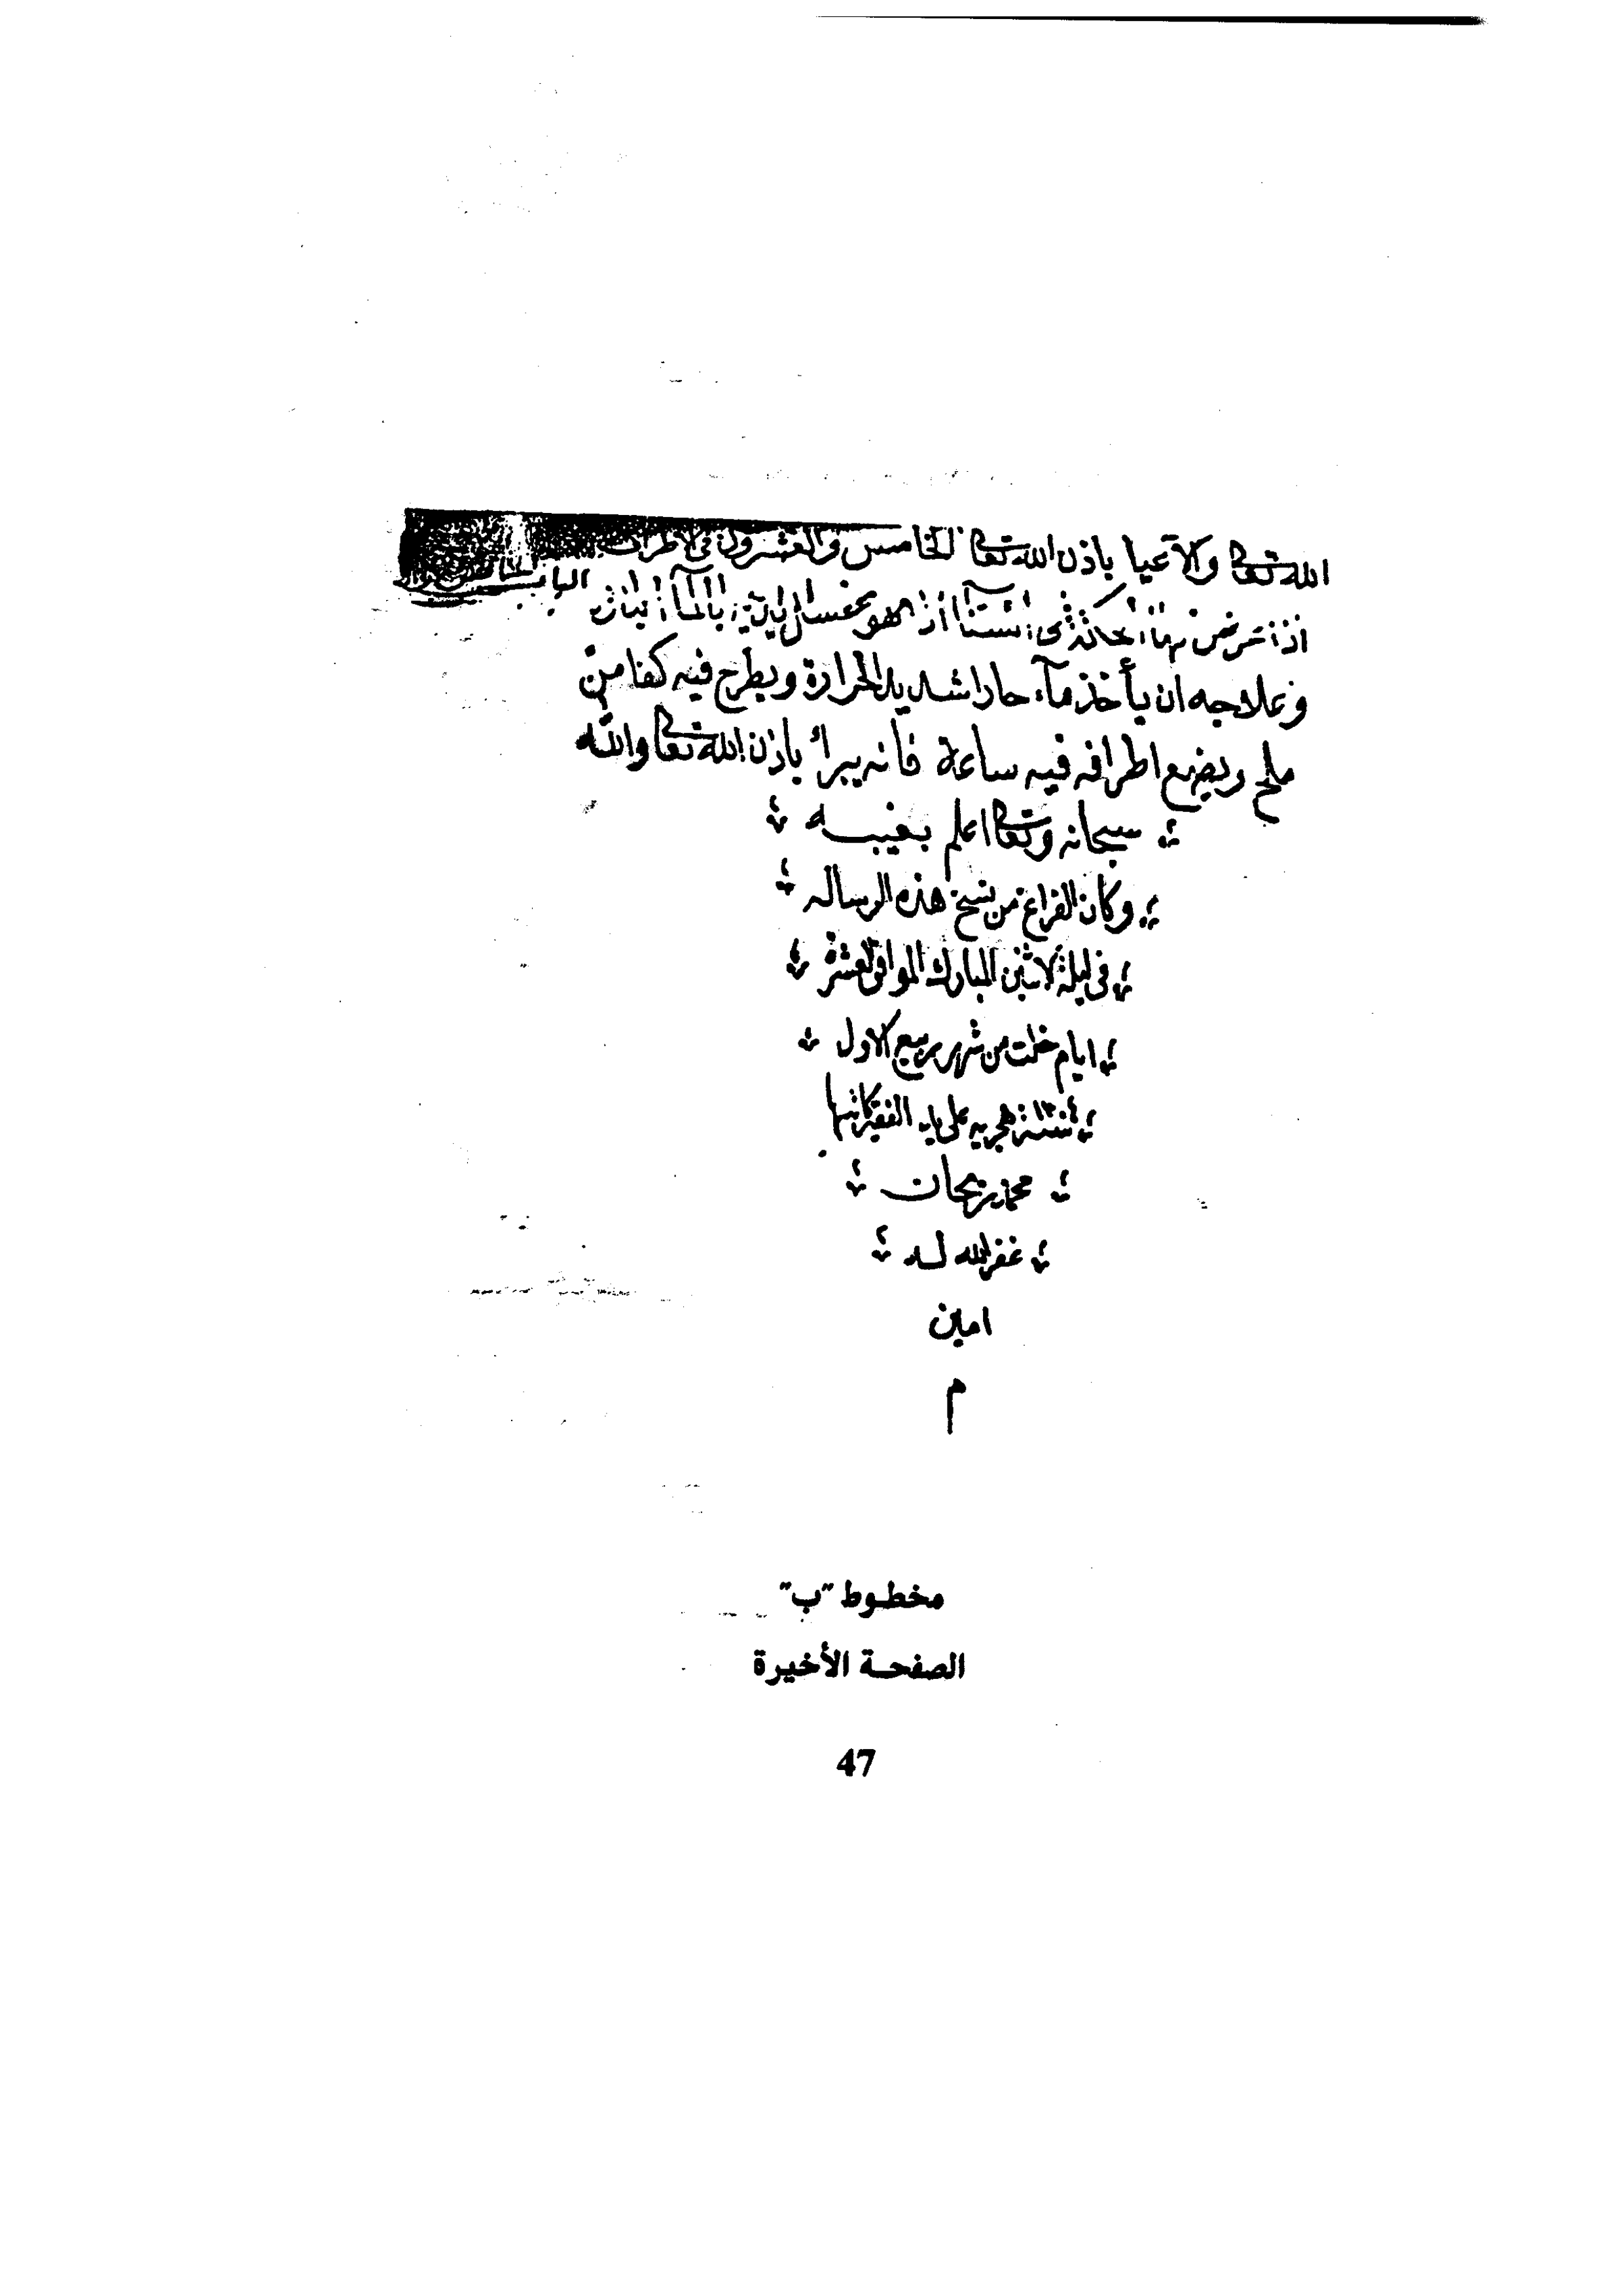 الله تعالى والاعيا باذن الله تعالى الخامس والعشرون في الاطراف
اذا هو بالمآ الباب
وعلاجه ان يأخذ مآء حارا شديد الحرارة ويطرح فيه كفا من
ملح ويضع اطرافه فيه ساعة فانه يبرأ باذن الله تعالى والله
سبحانه وتعالى اعلم بغيبه
وكان الفراغ من نسخ هذه الرساله
في ليلة الاثنين المبارك الموافق لعشرة
ايام خلت من شهر ربيع الاول
سنة هجريه على يد الفقير كاتبها
محمد
غفر الله له
امين
م
مخطوط "ب"
الصفحة الأخيرة
47